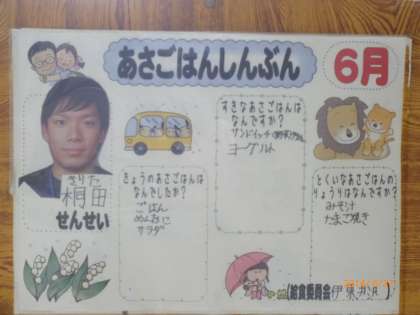 あさごはんしんぶん
6月
きりた
桐田
せんせい
きょうのあさごはんは
なんでしたか?
ごはん
めんたいこ
サラダ
すきなあさごはんは
なんですか?
サンドイッチ
ヨーグルト
とくいなあさごはんの
りょうりはなんですか?
みそ汁
たまご焼き
(給食委員会